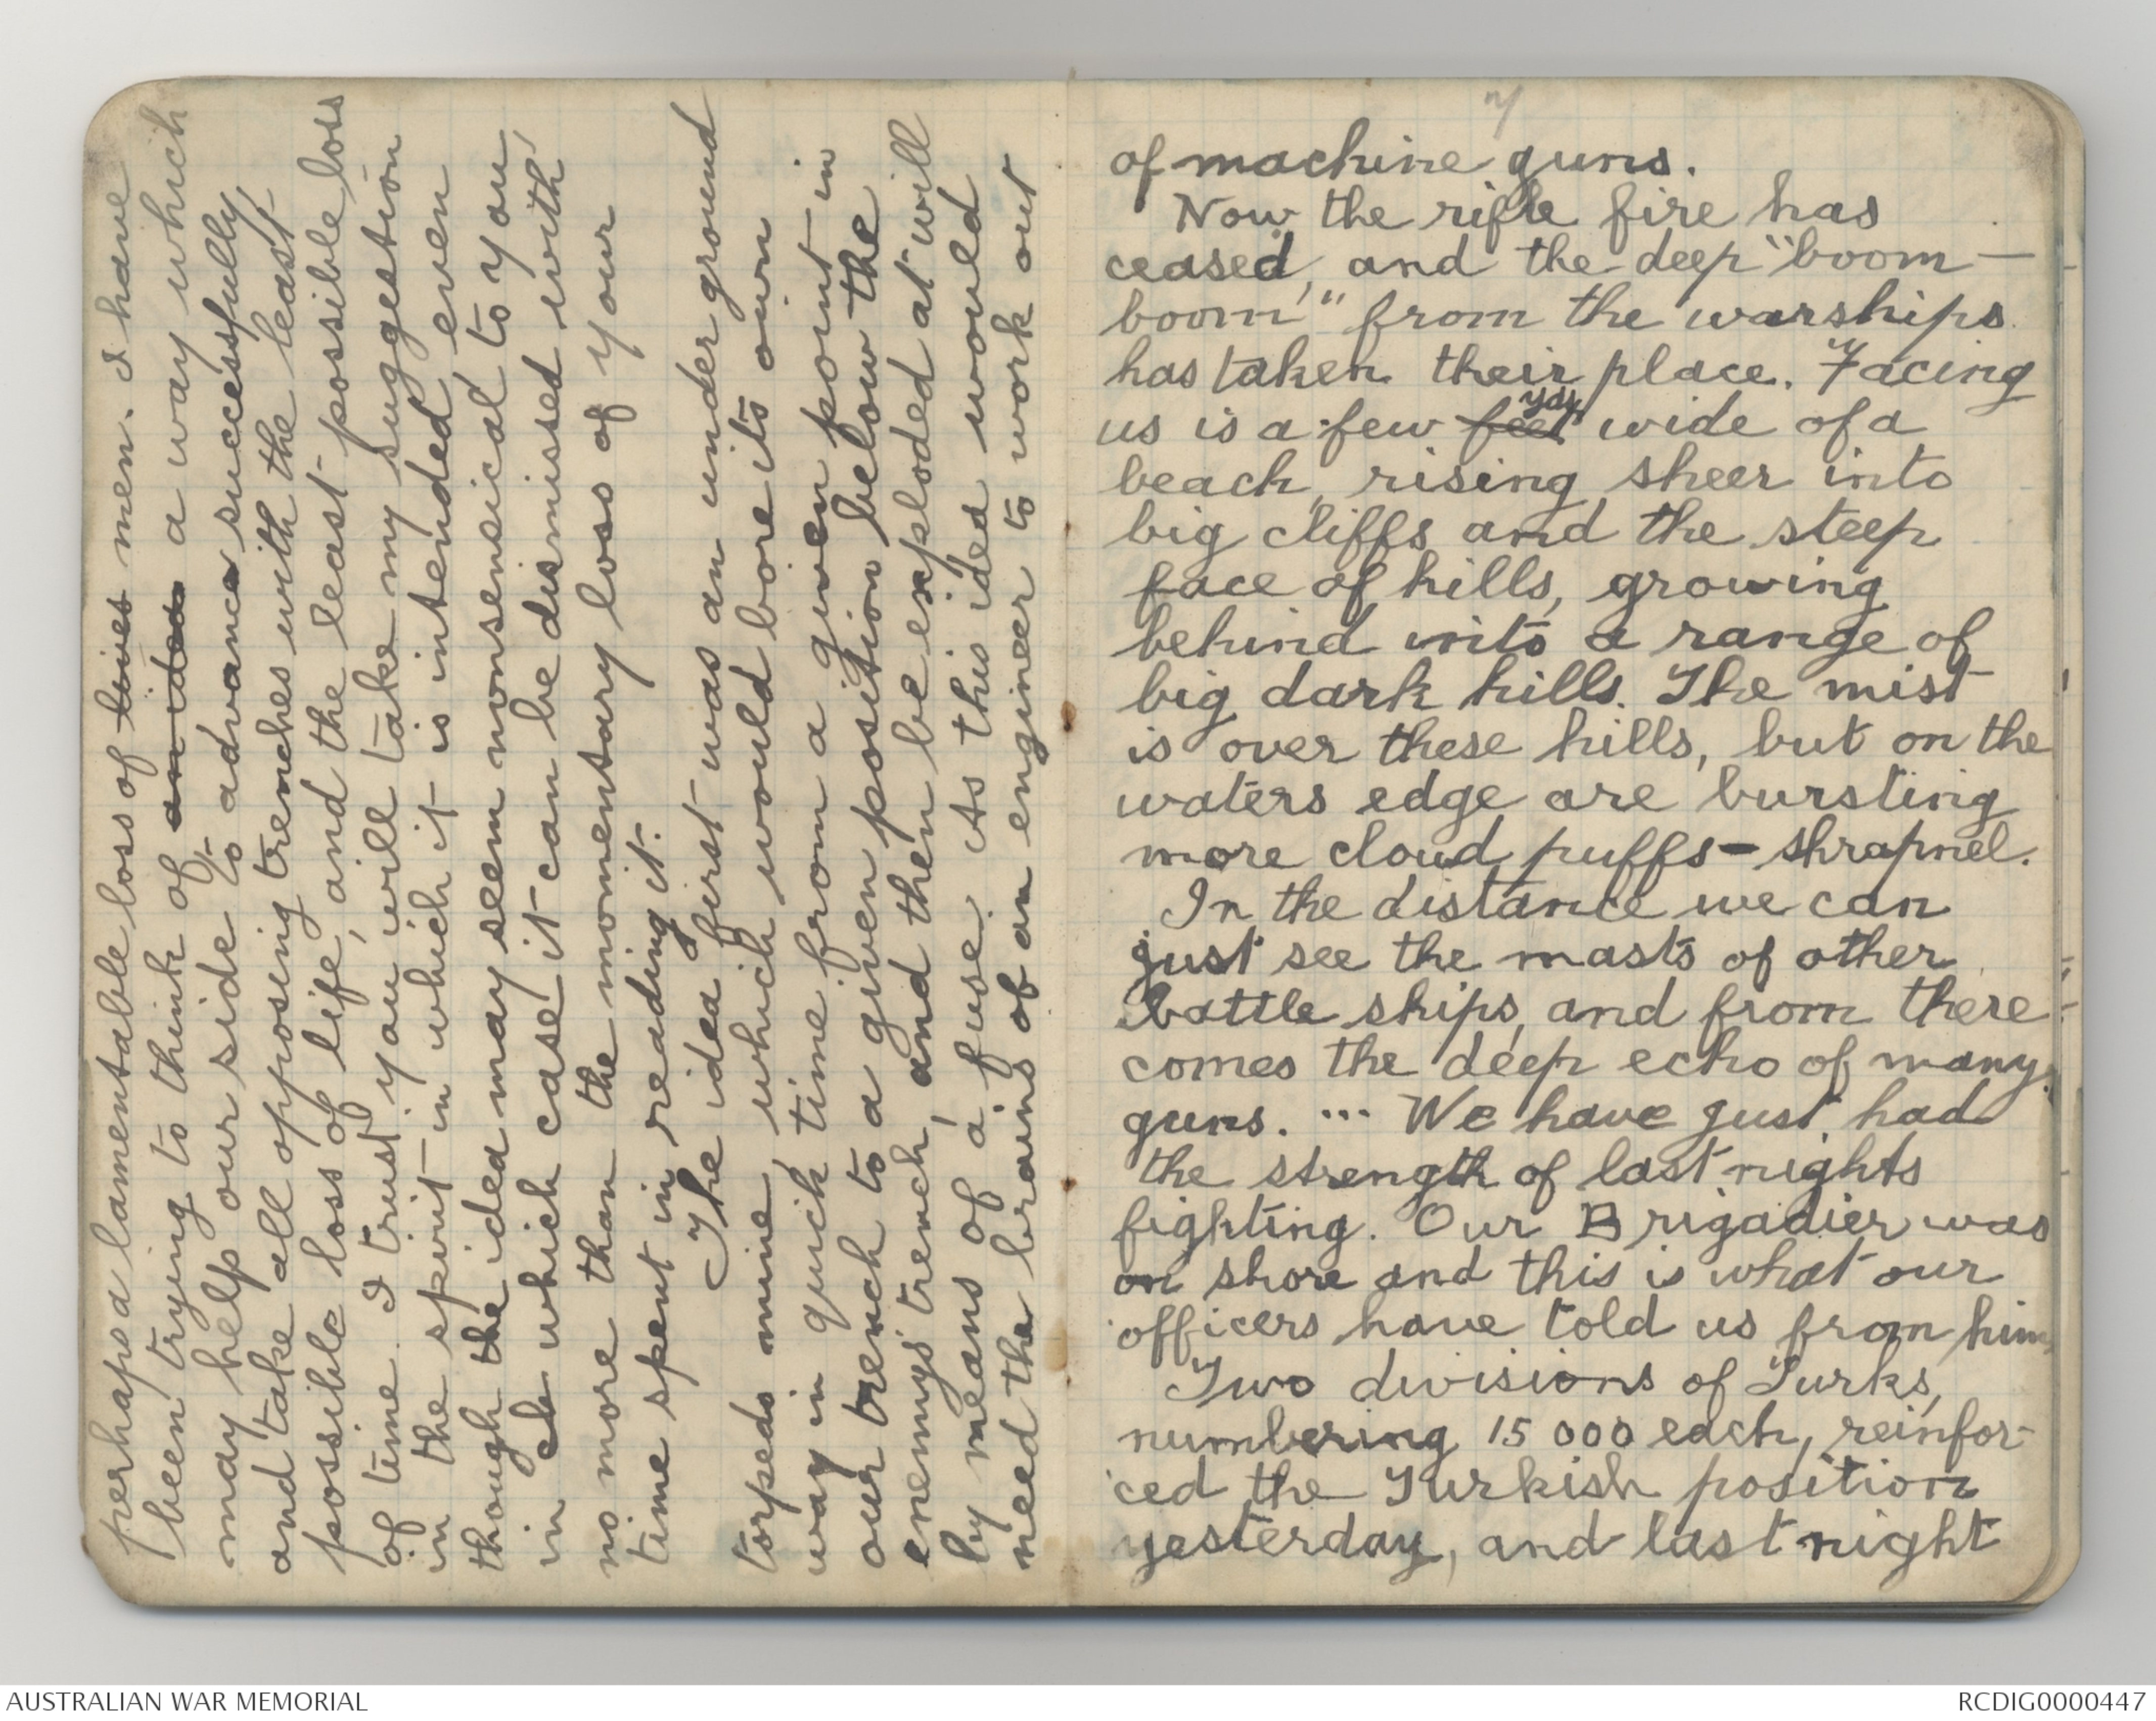 perhaps a lamentable loss of lives men. I have
been trying to think of an idea a way which
may help our side to advance successfully
and take all opposing trenches with the least
possible loss of life, and the least possible loss
of time. I trust you will take my suggestion
in the spirit in which it is intended, even
though the idea may seem nonsensical to you,
in which case it can be dismissed with
no more than the momentary loss of your
time spent in reading it.
The idea first was an under ground
torpedo mine, which would bore its own
way in quick time from a given point in
our trench to a given position below the
enemys trench, and then be exploded at will
by means of a fuse. As this idea would
need the brains of an engineer to work out
of machine guns.
Now the rifle fire has
ceased, and the deep "boom—
boom" from the warships
has taken their place. Facing
us is a few feet yds wide of a
beach, rising sheer into
big cliffs and the steep
face of hills, growing
behind into a range of
big dark hills. The mist
is over these hills, but on the
waters edge are bursting
more cloud puffs – shrapnel.
In the distance we can
just see the masts of other
battle ships, and from there
comes the deep echo of many
guns. ... We have just had
the strength of last nights
fighting. Our Brigadier was
on shore and this is what our
officers have told us from him
Two divisions of Turks,
numbering 15 000 each, reinfor-
ced the Turkish position
yesterday, and last night
AUSTRALIAN WAR MEMORIAL
RCDIG0000447